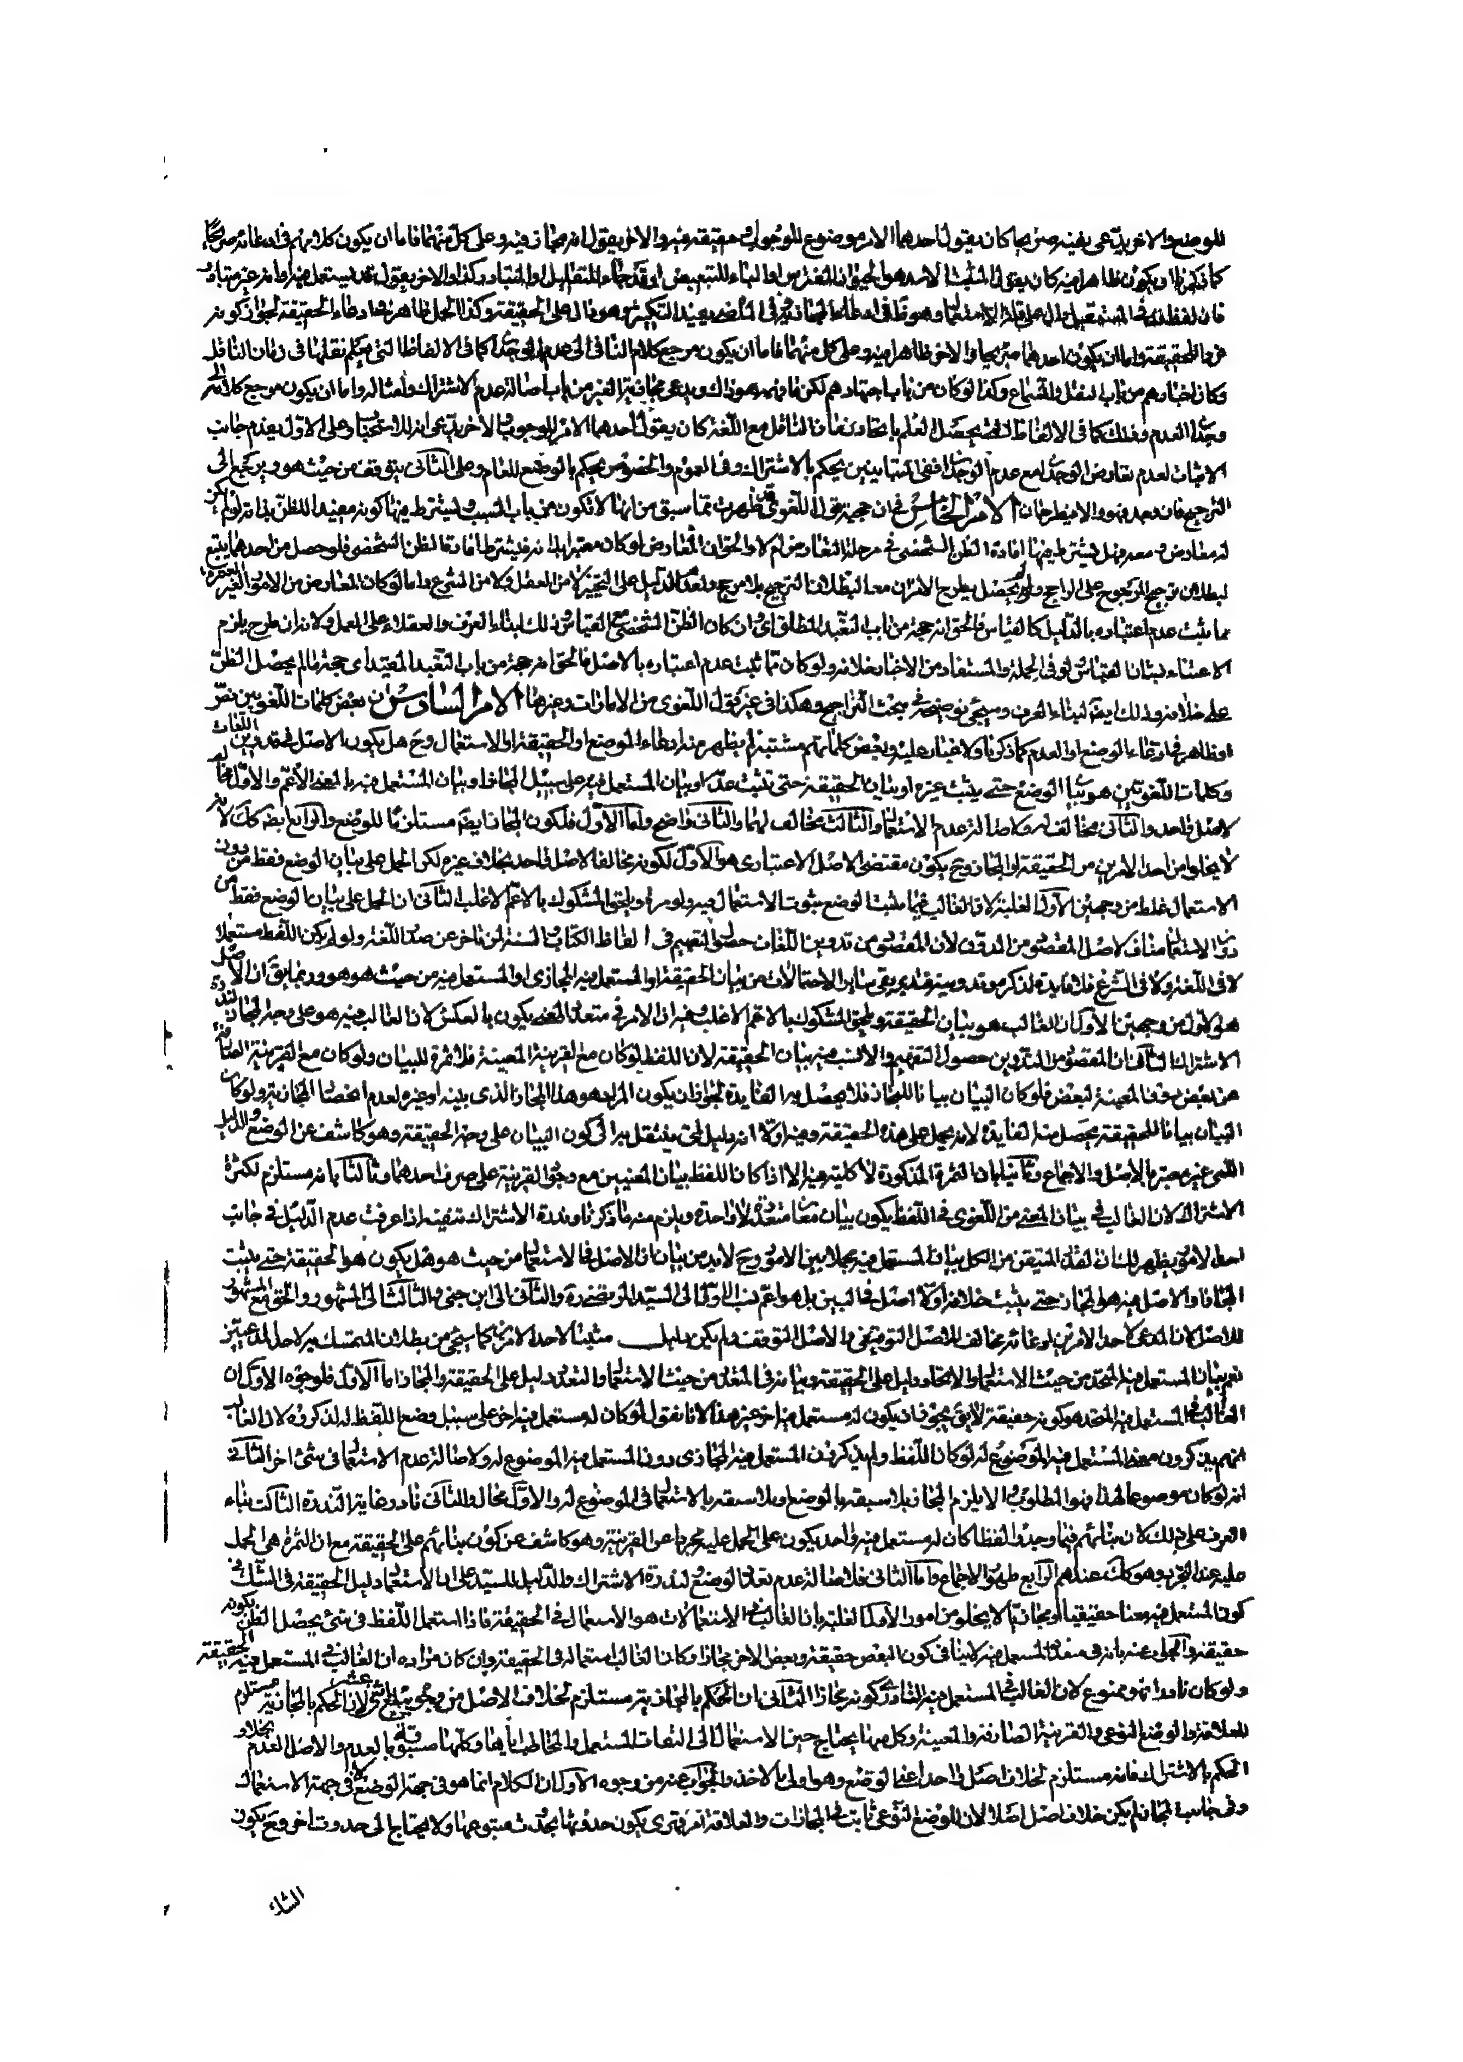 للوضع والاخر يدعى نفيه صريحا كان يقول احدهما الامر موضوع للوجوب وحقيقة فيه والاخر يقول انه مجاز فيه وعلى كل منهما فاما ان يكون كلامهم فى ادعائه صريحا
كما ذكرنا او يكون ظاهرا فيه كان يقول المثبت الاسد هو الحيوان المفترس او الباء للتبعيض او قد جاء للتقليل او المتبادر كذا والاخر يقول
فان لفظ فى المستقبل
والحقيقة واما ان يكون احدهما صريحا والاخر ظاهرا فيه وعلى كل منهما فاما ان يكون مرجع كلام النافى الى عدم الوجدان كما فى الالفاظ التى نقلها فى زمان الناقل
وكان اخبارهم من باب النقل والسماع وكذا لو كان من باب اجتهادهم لكن من باب اصالة عدم الاشتراك وامثاله واما ان يكون مرجع كلامه الى
وجدان العدم وذلك كما فى الالفاظ التى يحصل العلم باتحاد زمان الناقل مع اللغة كان يقول احدهما الامر للوجوب والاخر يدعى انه للاستحباب وعلى الاول يقدم جانب
الاثبات لعدم تعارض الوجدان مع عدم الوجدان ففى المتباينين يحكم بالاشتراك وفى العموم والخصوص يحكم بالوضع للعام وعلى الثانى يتوقف من حيث هو ويرجع الى
الترجيح فان وجد فهو والا فيطرحان الامر الخامس فى ان حجية قول اللغوى قد ظهرت مما سبق من انها لا تكون من باب السبب ويشترط فيها كونه مفيدا للظن
له معارض ومعه فهل يشترط فيها افادة الظن الشخصى فى مرحلة التعارض ام لا والحق ان المعارض لو كان معتبرا بذاته فيشترط افادة الظن الشخصى فلو حصل من احدهما يتبع
لبطلان ترجيح المرجوح على الراجح ولو لم يحصل يطرح الامران معا لبطلان الترجيح بلا مرجح ولعدم الدليل على التخيير لا من العقل ولا من الشرع واما لو كان المعارض من الامور الغير المعتبرة
مما يثبت عدم اعتباره بالدليل كالقياس فالحق انه حجة من باب التعبد المطلق اى وان كان الظن الشخصى مع القياس وذلك لبناء العرف والعقلاء على العمل ولانه ان طرح يلزم
الاعتناء بشان القياس ولو فى الجملة والمستفاد من الاخبار خلافه ولو كان مما ثبت عدم اعتباره بالاصل فالحق انه حجة من باب التعبد المقيد اى حجة مالم يحصل الظن
على خلافه وذلك ايضا لبناء العرف وسيجئ توضيحه فى مبحث التراجيح وهكذا فى غير قول اللغوى من الامارات وغيرها الامر السادس ان بعض كلمات اللغويين نص
او ظاهر فى ادعاء الوضع او العدم كما ذكرنا ولا غبار عليه وبعض كلماتهم مشتبه لم يظهر منه ادعاء الوضع او الحقيقة او الاستعمال وح هل يكون الاصل فى تدوين اللغات
وكلمات اللغويين هو بيان الوضع حتى يثبت غيره او بيان الحقيقة حتى تثبت عدمه او بيان المستعمل فيه على سبيل المجاز او بيان المستعمل فيه بالمعنى الاعم والاول مخالف
لاصل واحد والثانى مخالف له ولاصالة عدم الاستعمال والثالث مخالف لهما والثانى واضح واما الاول فلكون المجاز ايضا مستلزما للوضع والرابع ايضا كك لانه
لا يخلو من احد الامرين من الحقيقة او المجاز وح يكون مقتضى الاصل الاعتبارى هو الاول لكونه مخالفا لاصل واحد بخلاف غيره لكن الحمل على بيان الوضع فقط من دون
الاستعمال غلط من وجهين الاول الغلبة لان الغالب فيما يثبت الوضع ثبوت الاستعمال فيه ولو مرة ويلحق المشكوك بالاعم الاغلب الثانى ان الحمل على بيان الوضع فقط من
دون الاستعمال مناف لاصل المقصود من المدون لان المقصود من تدوين اللغات حصول التفهيم فى الفاظ الكتاب والسنة لمن تاخر عن صدر اللغة ولو لم يكن اللفظ مستعملا
لا فى اللغة ولا فى الشرع فلا فايدة لذكره وتدوينه فقد بقى ساير الاحتمالات من بيان الحقيقة او المستعمل فيه المجازى او المستعمل فيه من حيث هو هو وربما يق ان الاصل
هو الاول من وجهين الاول ان الغالب هو بيان الحقيقة ويلحق المشكوك بالاعم الاغلب وفيه ان الامر فى متعدد المعنى يكون بالعكس لان الغالب فيه هو على وجه المجاز لندرة
الاشتراك الثانى ان المقصود من التدوين حصول التفهيم والانسب فيه بيان الحقيقة لان اللفظ لو كان مع القرينة المعينة فلا ثمرة للبيان ولو كان مع القرينة الصارفة
عن بعض دون المعينة لبعض فلو كان البيان بيانا للمجاز فلا يحصل به الفايدة لجواز ان يكون المراد هو هذا المجاز الذى بينه او غيره لعدم انحصار المجاز فيه ولو كان
البيان بيانا للحقيقة يحصل منه الفايدة لانه يحمل على هذه الحقيقة وفيه اولا انه دليل لمى ينتقل به الى كون البيان على وجه الحقيقة وهو كاشف عن الوضع والدليل
اللمى غير معتبر بالاصل والاجماع وثانيا بان الثمرة المذكورة لا كلية فيه الا اذا كان اللفظ بيان المعنيين مع وجود القرينة على صرف احدهما وثالثا بانه مستلزم لكثرة
الاشتراك لان الغالب فى بيان المعنى من اللغوى فى اللفظ يكون بيان معان متعددة لا واحدة ويلزم منه ما ذكرنا وندرة الاشتراك تنفيه اذا عرفت عدم الدليل فى جانب
احد الامور يظهر لك ان القدر المتيقن من الكل بيان المستعمل فيه مجملا بين الامور وح لا بد من بيان ان الاصل فى الاستعمال من حيث هو هل يكون هو الحقيقة حتى يثبت
المجاز او الاصل فيه هو المجاز حتى يثبت خلافه او لا اصل فى البين بل هو اعم نسب الاول الى السيد المرتضى ره والثانى الى ابن جنى والثالث الى المشهور والحق مع المشهور
للاصل لان المدعى لاحد الامرين ادعائه مخالف للاصل التوقيفى والاصل التوقف ولم يكن دليل مثبتا لاحد الامرين كما سيجئ من بطلان المتمسك به لاحد المدعيين
نعم بيان المستعمل فيه المتحد من حيث الاستعمال والاتحاد دليل على الحقيقة وبيانه فى المتعدد من حيث الاستعمال والتعدد دليل على الحقيقة والمجاز اما الاول فلوجوه الاول ان
الغالب فى المستعمل فيه المتحد هو كونه حقيقة لا يق يجوز ان يكون له مستعمل فيه اخر غير هذا لانا نقول لو كان له مستعمل فيه اخر على سبيل وضع اللفظ له لذكروه لان الغالب
انهم يذكرون معنى المستعمل فيه الموضوع له لو كان اللفظ ولم يذكرون المستعمل فيه المجازى دون المستعمل فيه الموضوع له ولاصالة عدم الاستعمال فى شئ اخر الثانى
انه لو كان موضوعا لهذا فهو المطلوب والا يلزم المجاز بلا سبقه بالوضع او بلا سبقه بالاستعمال فى الموضوع له والاول محال والثانى نادر وغاية الندرة الثالث بناء
العرف على ذلك لان بنائهم فيما وجدوا لفظا كان له مستعمل فيه واحد يكون على الحمل عليه مجردا عن القرينة وهو كاشف عن كون بنائهم على الحقيقة مع ان الثمرة هى الحمل
عليه عند التجرد وهو كك عندهم الرابع ظهور الاجماع واما الثانى فلاصالة عدم تعدد الوضع ولندرة الاشتراك والدليل للسيد على ان الاستعمال دليل الحقيقة فى الشك فى
كون المستعمل فيه معنا حقيقيا او مجازيا لا يخلو من امور الاول الغلبة بان الغالب فى الاستعمالات هو الاستعمال فى الحقيقة فاذا استعمل اللفظ فى شئ يحصل الظن بكونه
حقيقة والجواب عنه بانه فى متعدد المستعمل فيه لا ينافى كون البعض حقيقة وبعض الاخر مجازا وكان الغالب استعماله فى الحقيقة وان كان مراده ان الغالب فى المستعمل فيه الحقيقة
ولو كان نادرا فهو ممنوع لان الغالب فى المستعمل فيه النادر كونه مجازا الثانى ان الحكم بالمجازية مستلزم لخلاف الاصل من وجوه اثنى عشر لان الحكم بالمجازية مستلزم
للعلاقة والوضع النوعى والقرينة الصارفة والمعينة وكل منها يحتاج حين الاستعمال الى التفات المستعمل والمخاطب اياها وكلها مسبوقة بالعدم والاصل العدم بخلاف
الحكم بالاشتراك فانه مستلزم لخلاف اصل واحد اعنى الوضع وهو اولى بالاخذ والجواب عنه من وجوه الاول ان الكلام انما هو فى جهة الوضع لا فى جهة الاستعمال
وفى جانب المجاز لم يكن خلاف اصل اصلا لان الوضع النوعى ثابت فى المجازات والعلاقة امر قهرى يكون حدوثها بحدث متبوعها ولا يحتاج الى حدوث اخر وح يكون
الشك